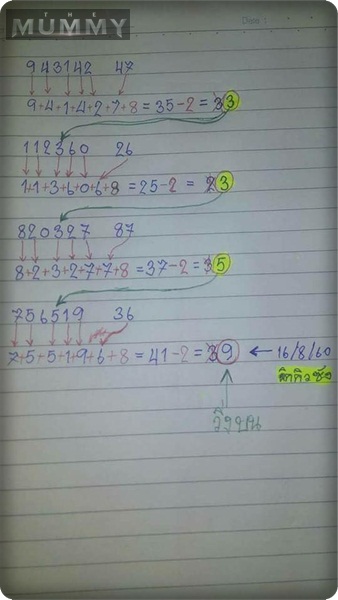 THE
MUMMY
Date :
943142 47
9+4+1+4+2+7+8 = 35-2 = 33
112360 26
1+1+3+6+0+6+8 = 25-2 = 23
820327 87
8+2+3+2+7+7+8 = 37-2 = 35
756519 36
7+5+5+1+9+6+8 = 41-2 = 39 ← 16/8/60
วิ่งบน